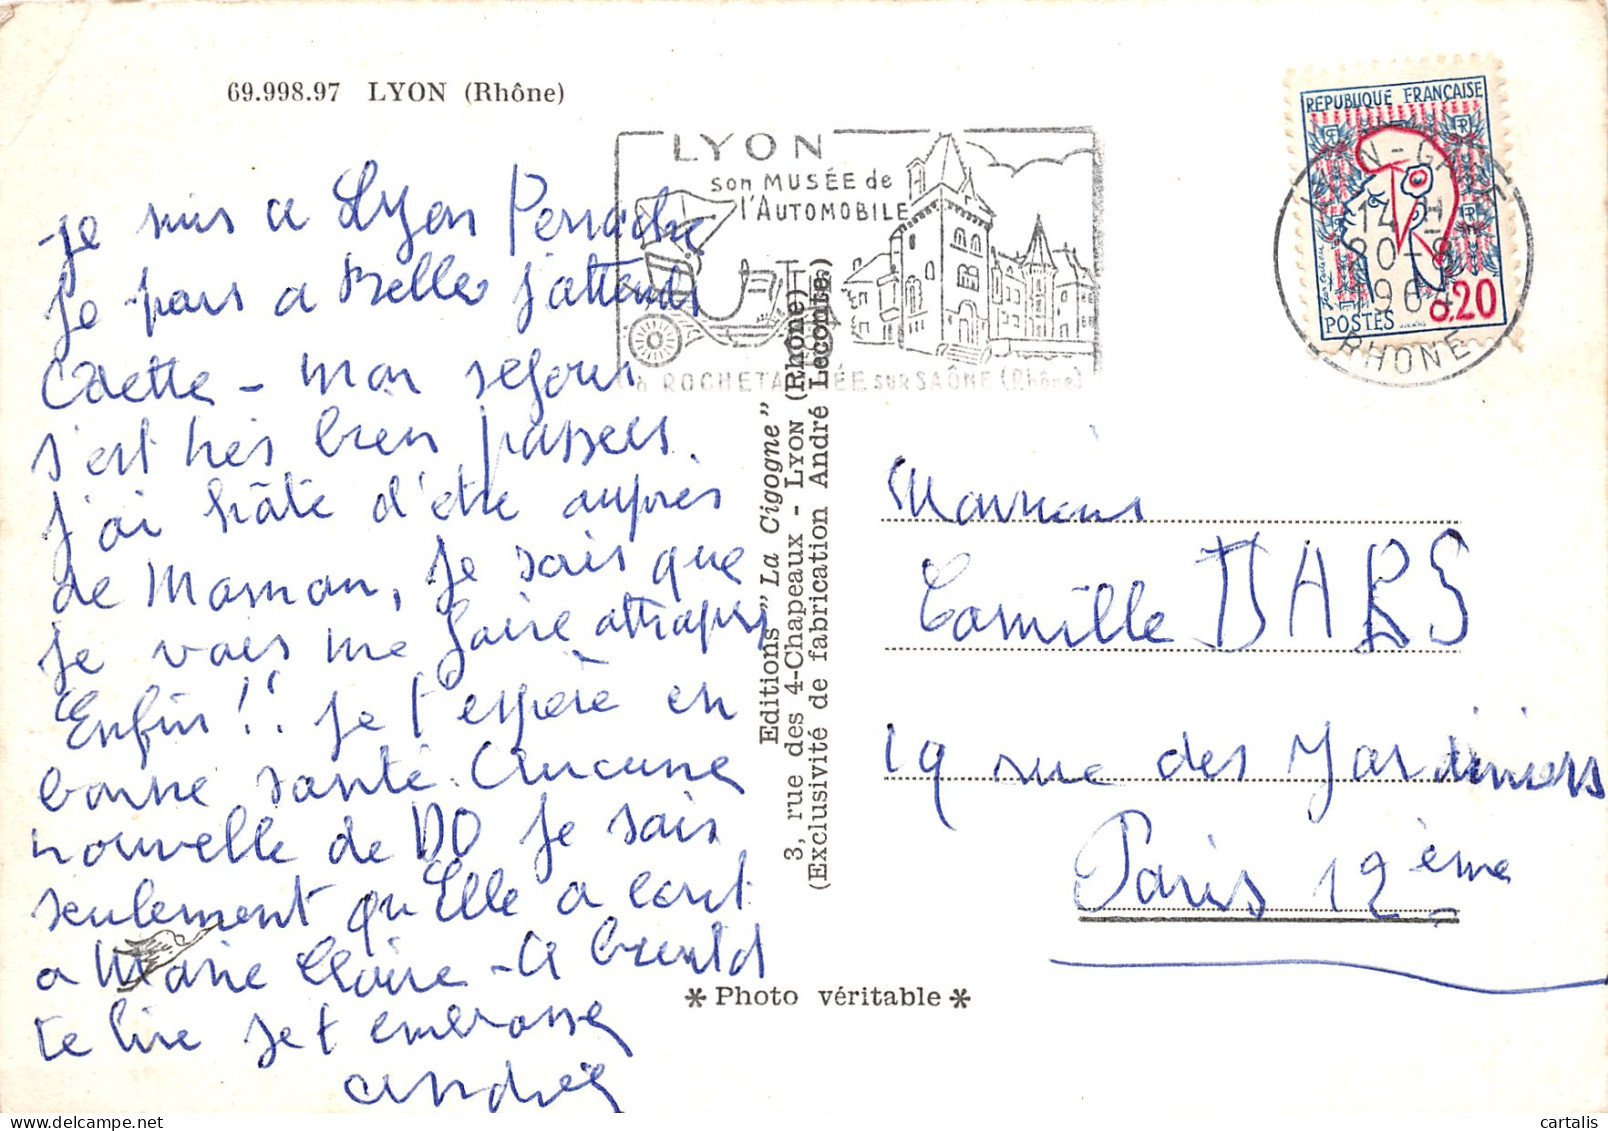 69.998.97 LYON (Rhône)
LYON
son MUSÉE de
l'AUTOMOBILE
ROCHETAILLÉE sur SAÔNE (Rhône)
REPUBLIQUE FRANÇAISE
POSTES
0.20
LYON-GARE
14 H
20-8
1964
RHONE
Je suis a Lyon Perrache
Je pars a Belley j'attends
Odette - mon sejour
s'est très bien passees.
J'ai hâte d'etre auprès
de Maman, Je sais que
Je vais me faire attraper
Enfin!! Je t'espère en
bonne santé. Aucune
nouvelle de DO Je sais
seulement qu'Elle a ecrit
a Marie Claire - A
te lire Je t embrasse
andrée
Editions "La Cigogne"
3, rue des 4-Chapeaux - LYON (Rhône)
(Exclusivité de fabrication André Leconte)
Camille DARS
19 rue des Jardiniers
Paris 12ème
* Photo véritable *
cartalis